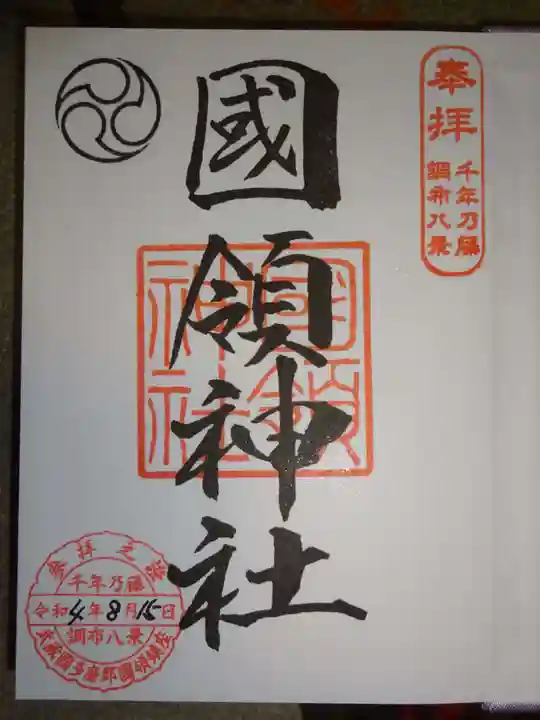 奉拝
千年乃藤
調布八景
國領神社
國領神社
参拝之證
千年乃藤
令和4年8月15日
調布八景
武蔵國多磨郡國領鎮座